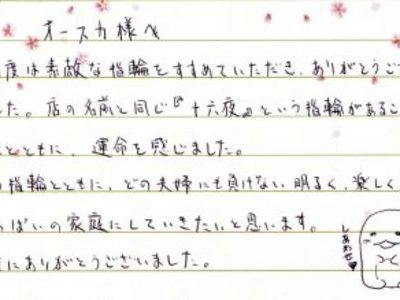 オースカ様へ
度は素敵な指輪をすすめていただき、ありがとうご
した。店の名前と同じ『十六夜』という指輪があるこ
とともに、運命を感じました。
指輪とともに、どの夫婦にも負けない明るく、楽しく
ぱいの家庭にしていきたいと思います。
にありがとうございました。
しあわせ